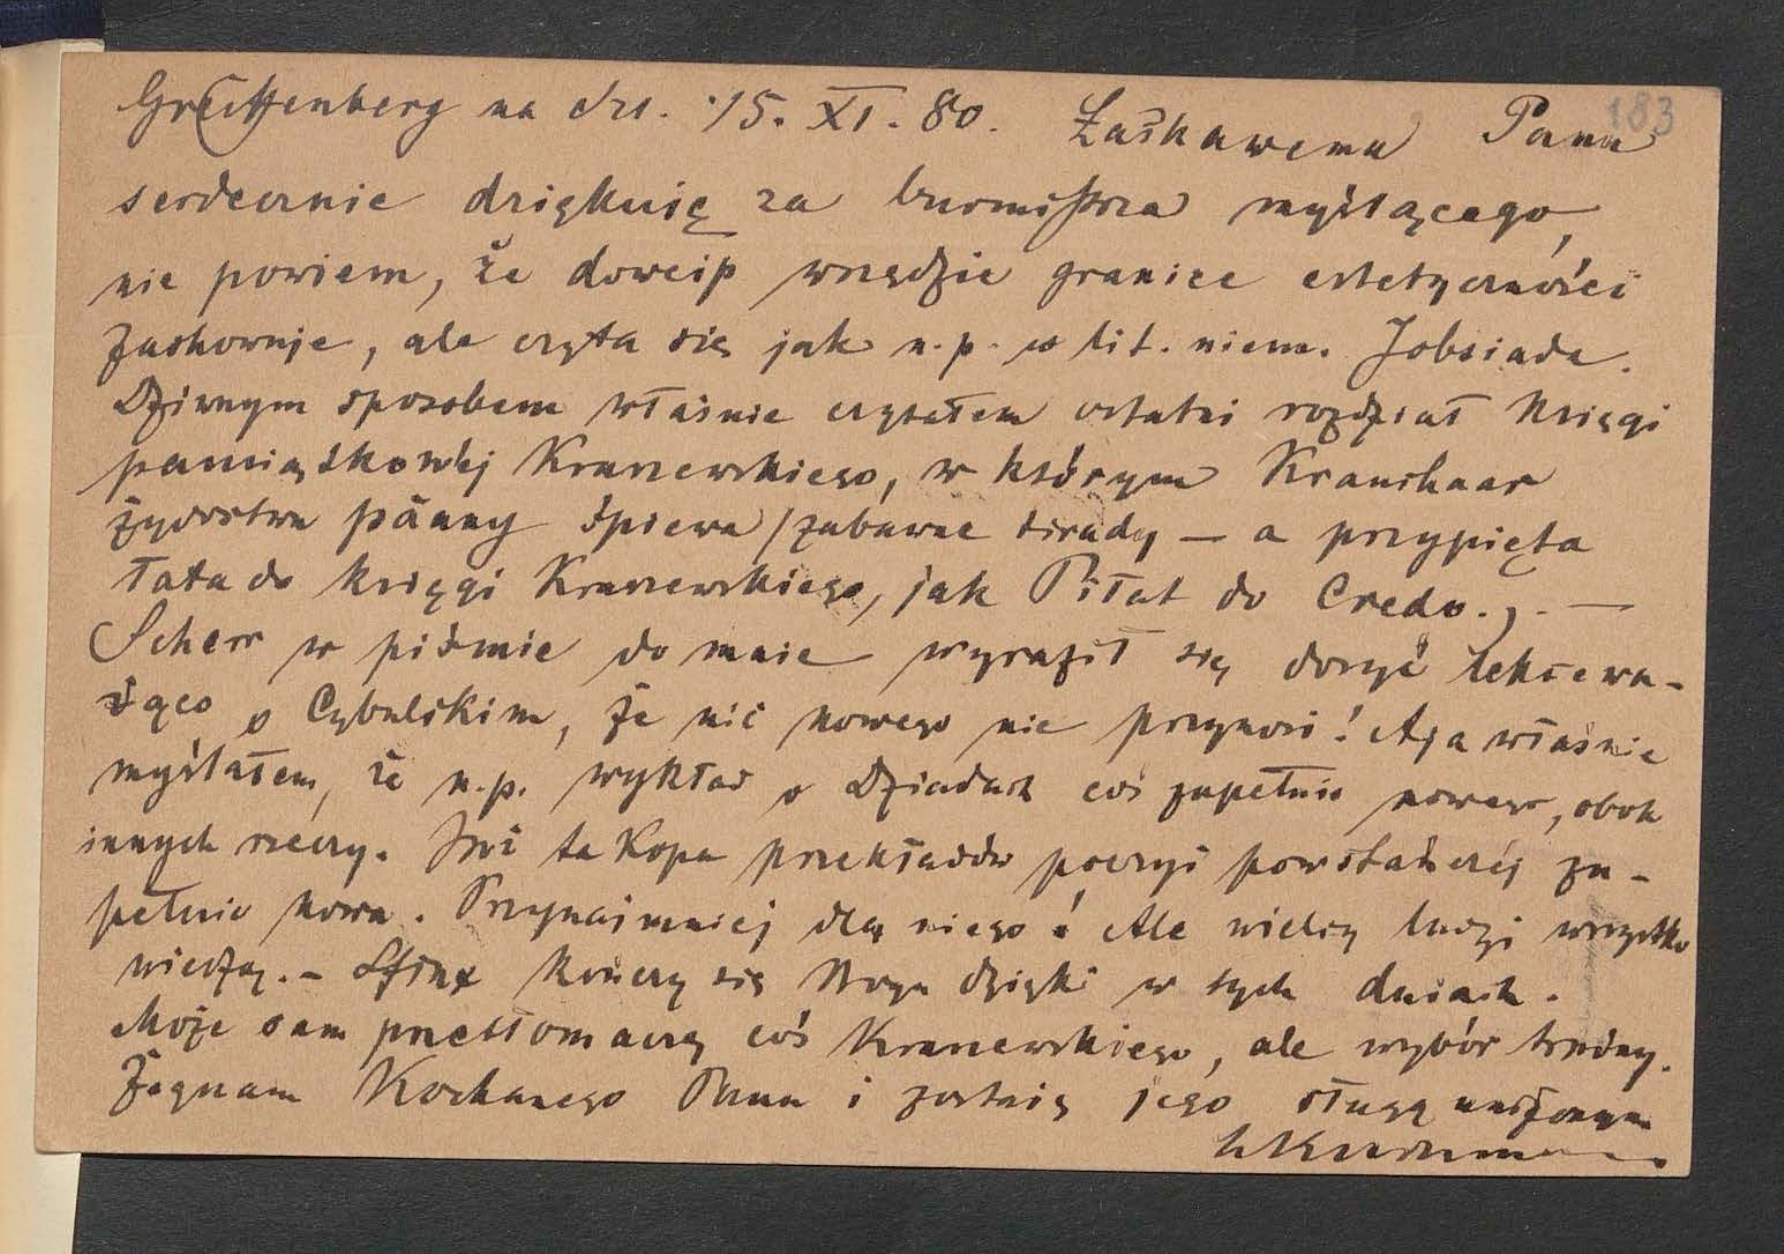 Greiffenberg na Szl. 15. XI. 80. Łaskawemu Panu 183
serdecznie dziękuję za burmistrza myślącego,
nie powiem, że dowcip wszędzie granice estetyczności
zachowuje, ale czyta się jak n.p. w lit. niem. Jobsiada.
Dziwnym sposobem właśnie czytałem ostatni rozdział Księgi
pamiątkowéj Kraszewskiego, w którym Kraushaar
żydostwu pänny śpiewa / zabawne tirady — a przypięta
łata do księgi Kraszewskiego, jak Piłat do Credo. —
Scherr w piśmie do mnie wyraził się dosyć lekcewa-
żąco o Cybulskim, że nic nowego nie przynosi! A ja właśnie
myślałem, że n.p. wykład o Dziadach coś zupełnie nowego, obok
innych rzeczy. Już ta kopa przekładów poezyi powstańczéj zu-
pełnie nowa. Przynajmniej dla niego! Ale wielcy ludzi wszystko
wiedzą. – Sfinx kończy się Bogu dzięki w tych dniach.
Może sam przetłomaczę coś Kraszewskiego, ale wybór trudny.
Żegnam Kochanego Pana i zostaię jego sługą uniżonym